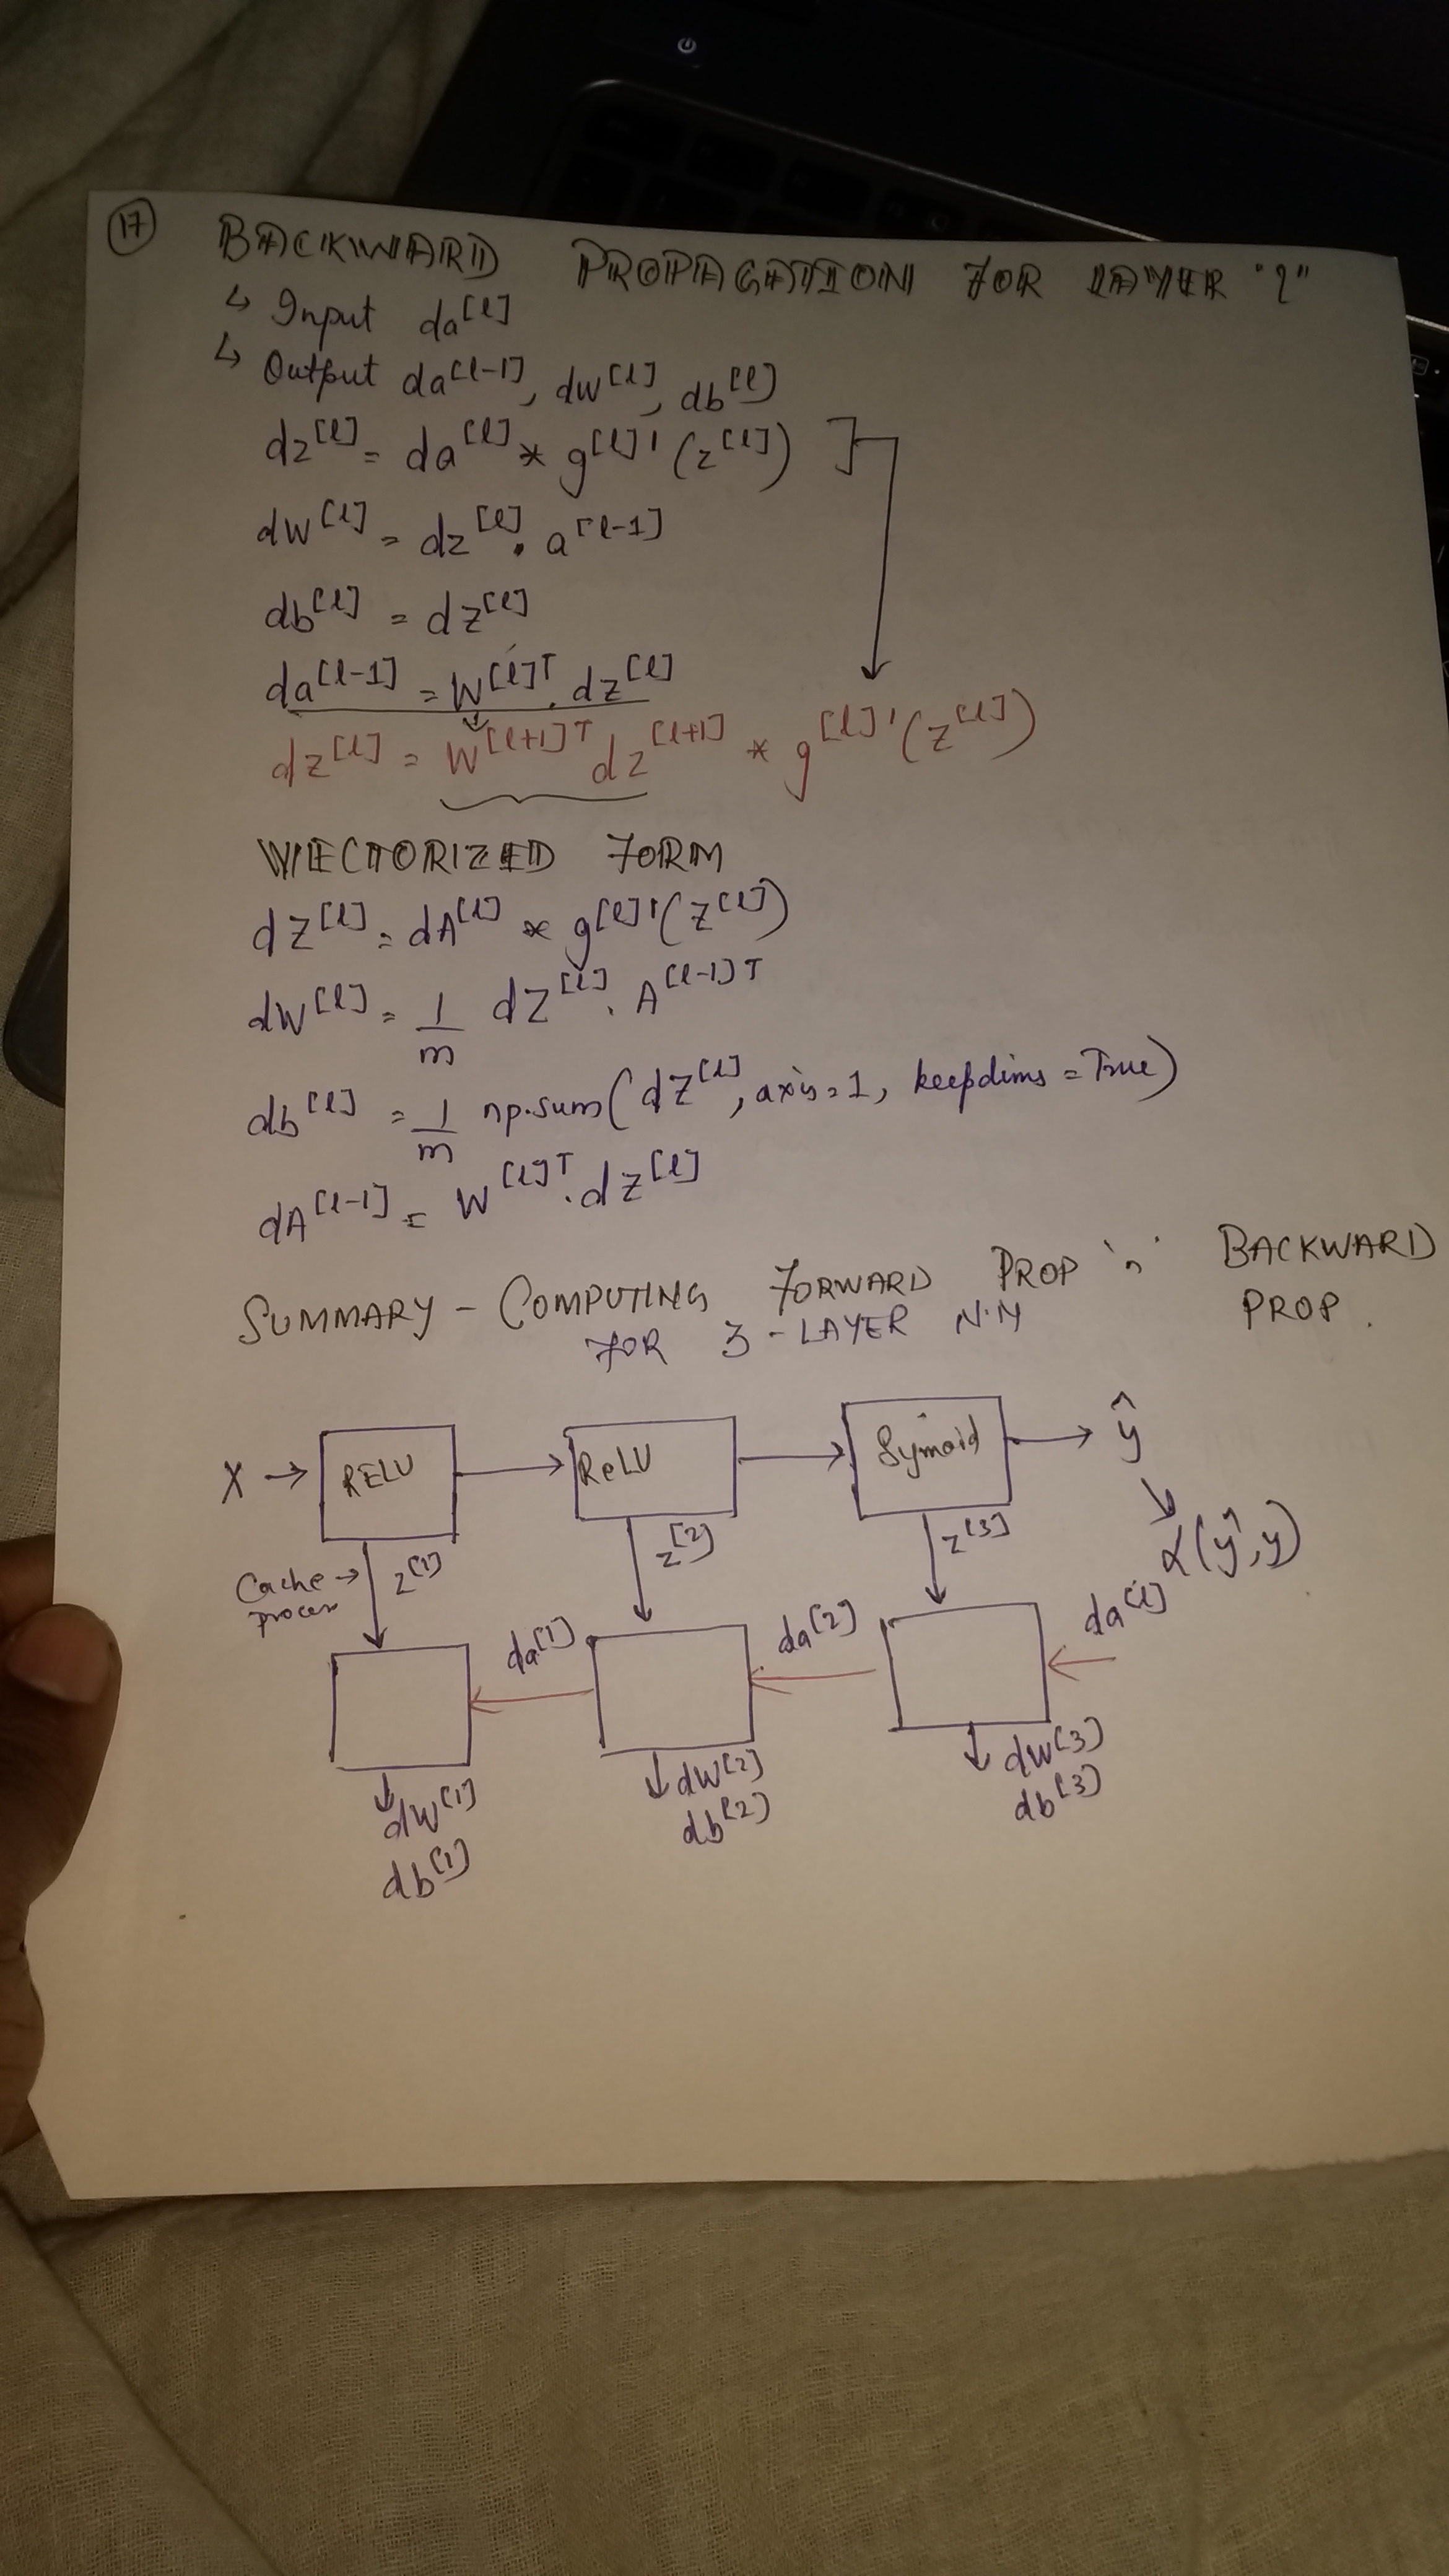 17
BACKWARD PROPAGATION FOR LAYER "l"
↳ Input da^[l]
↳ Output da^[l-1], dw^[l], db^[l]
dz^[l] = da^[l] * g^[l]'(z^[l])
dw^[l] = dz^[l] . a^[l-1]
db^[l] = dz^[l]
da^[l-1] = W^[l]T . dz^[l]
dz^[l] = W^[l+1]T dz^[l+1] * g^[l]'(z^[l])
VECTORIZED FORM
dZ^[l] = dA^[l] * g^[l]'(z^[l])
dW^[l] = 1/m dZ^[l] . A^[l-1]T
db^[l] = 1/m np.sum(dZ^[l], axis=1, keepdims=True)
dA^[l-1] = W^[l]T . dz^[l]
SUMMARY - COMPUTING FORWARD PROP 'n' BACKWARD PROP.
FOR 3-LAYER N.N
X → RELU → ReLU → Symoid → ŷ
z^[1] z^[2] z^[3] L(ŷ, y)
Cache →
process
da^[1] da^[2] da^[l]
dw^[1] dw^[2] dw^[3]
db^[1] db^[2] db^[3]